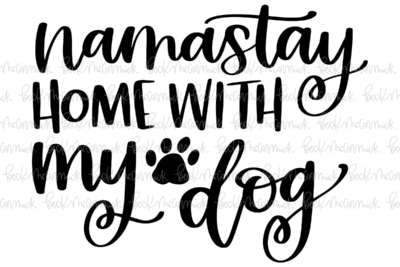 namastay
HOME WITH
my dog